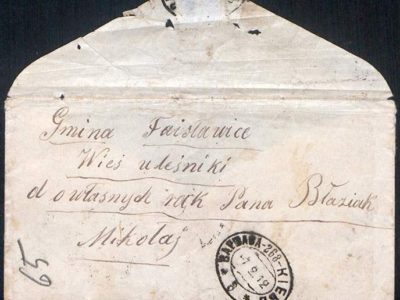 Gmina Faisławice
Wieś uleśniki
d o własnych rąk Pana Błaziak
Mikołaj
65
ВАРШАВА-268-КІЕВ